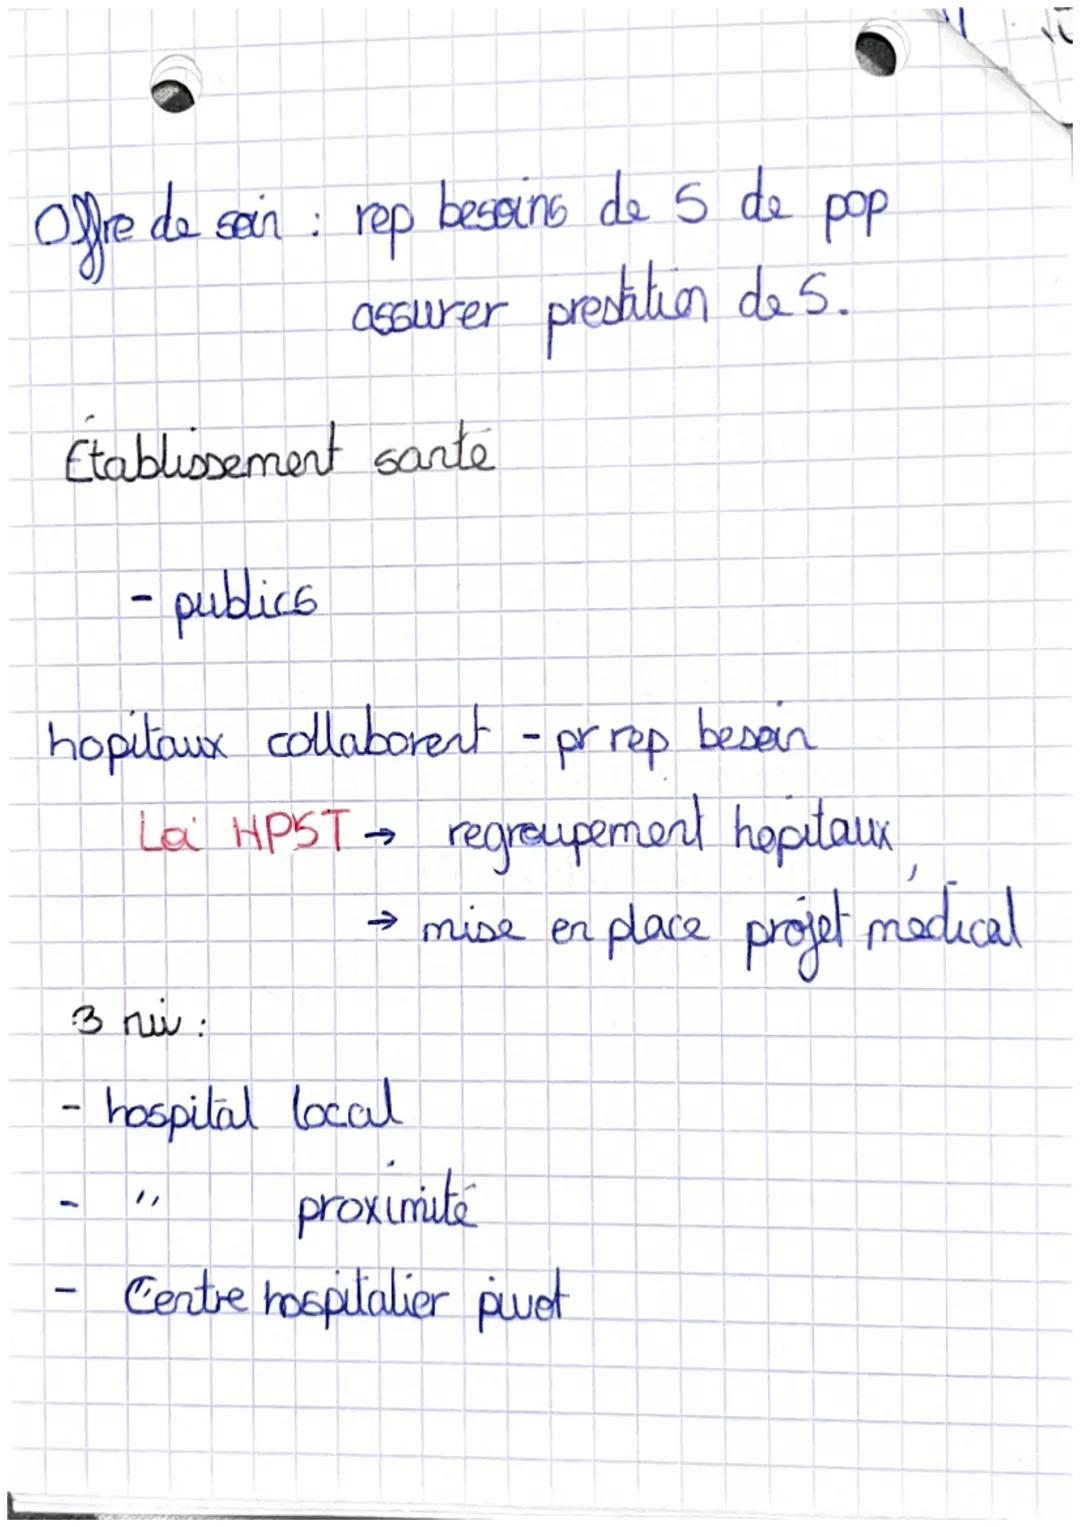 Offre de soin : rep besoins de S de pop
assurer prestation de S.
Établissement santé
- publics
hopitaux collaborent - pr rep besoin
Loi HPST → regroupement hopitaux
→ mise en place projet médical
3 niv :
- hospital local
- " proximité
- Centre hospitalier pivot